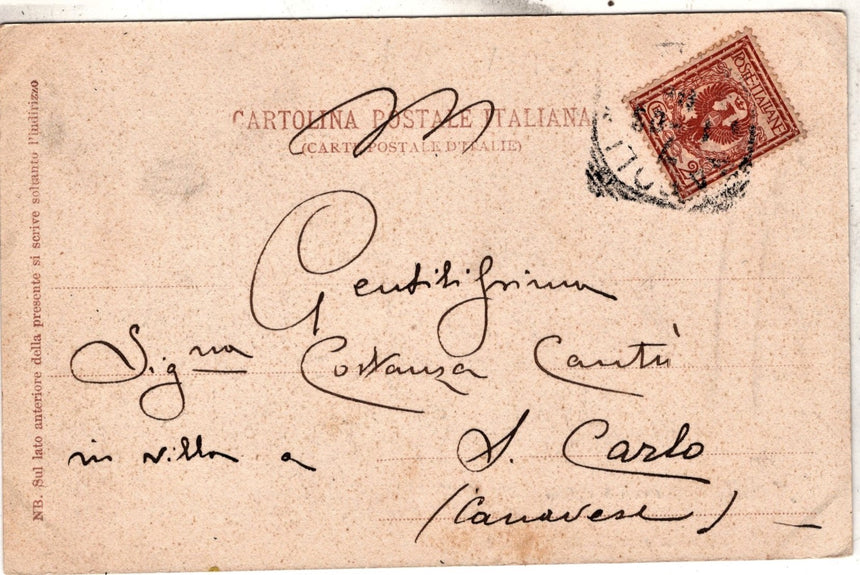 CARTOLINA POSTALE ITALIANA
(CARTE POSTALE D'ITALIE)
POSTE·ITALIANE
Gentilissima
Sig.na Costanza Cantù
in villa a S. Carlo
(Canavese)
NB. Sul lato anteriore della presente si scrive soltanto l'indirizzo